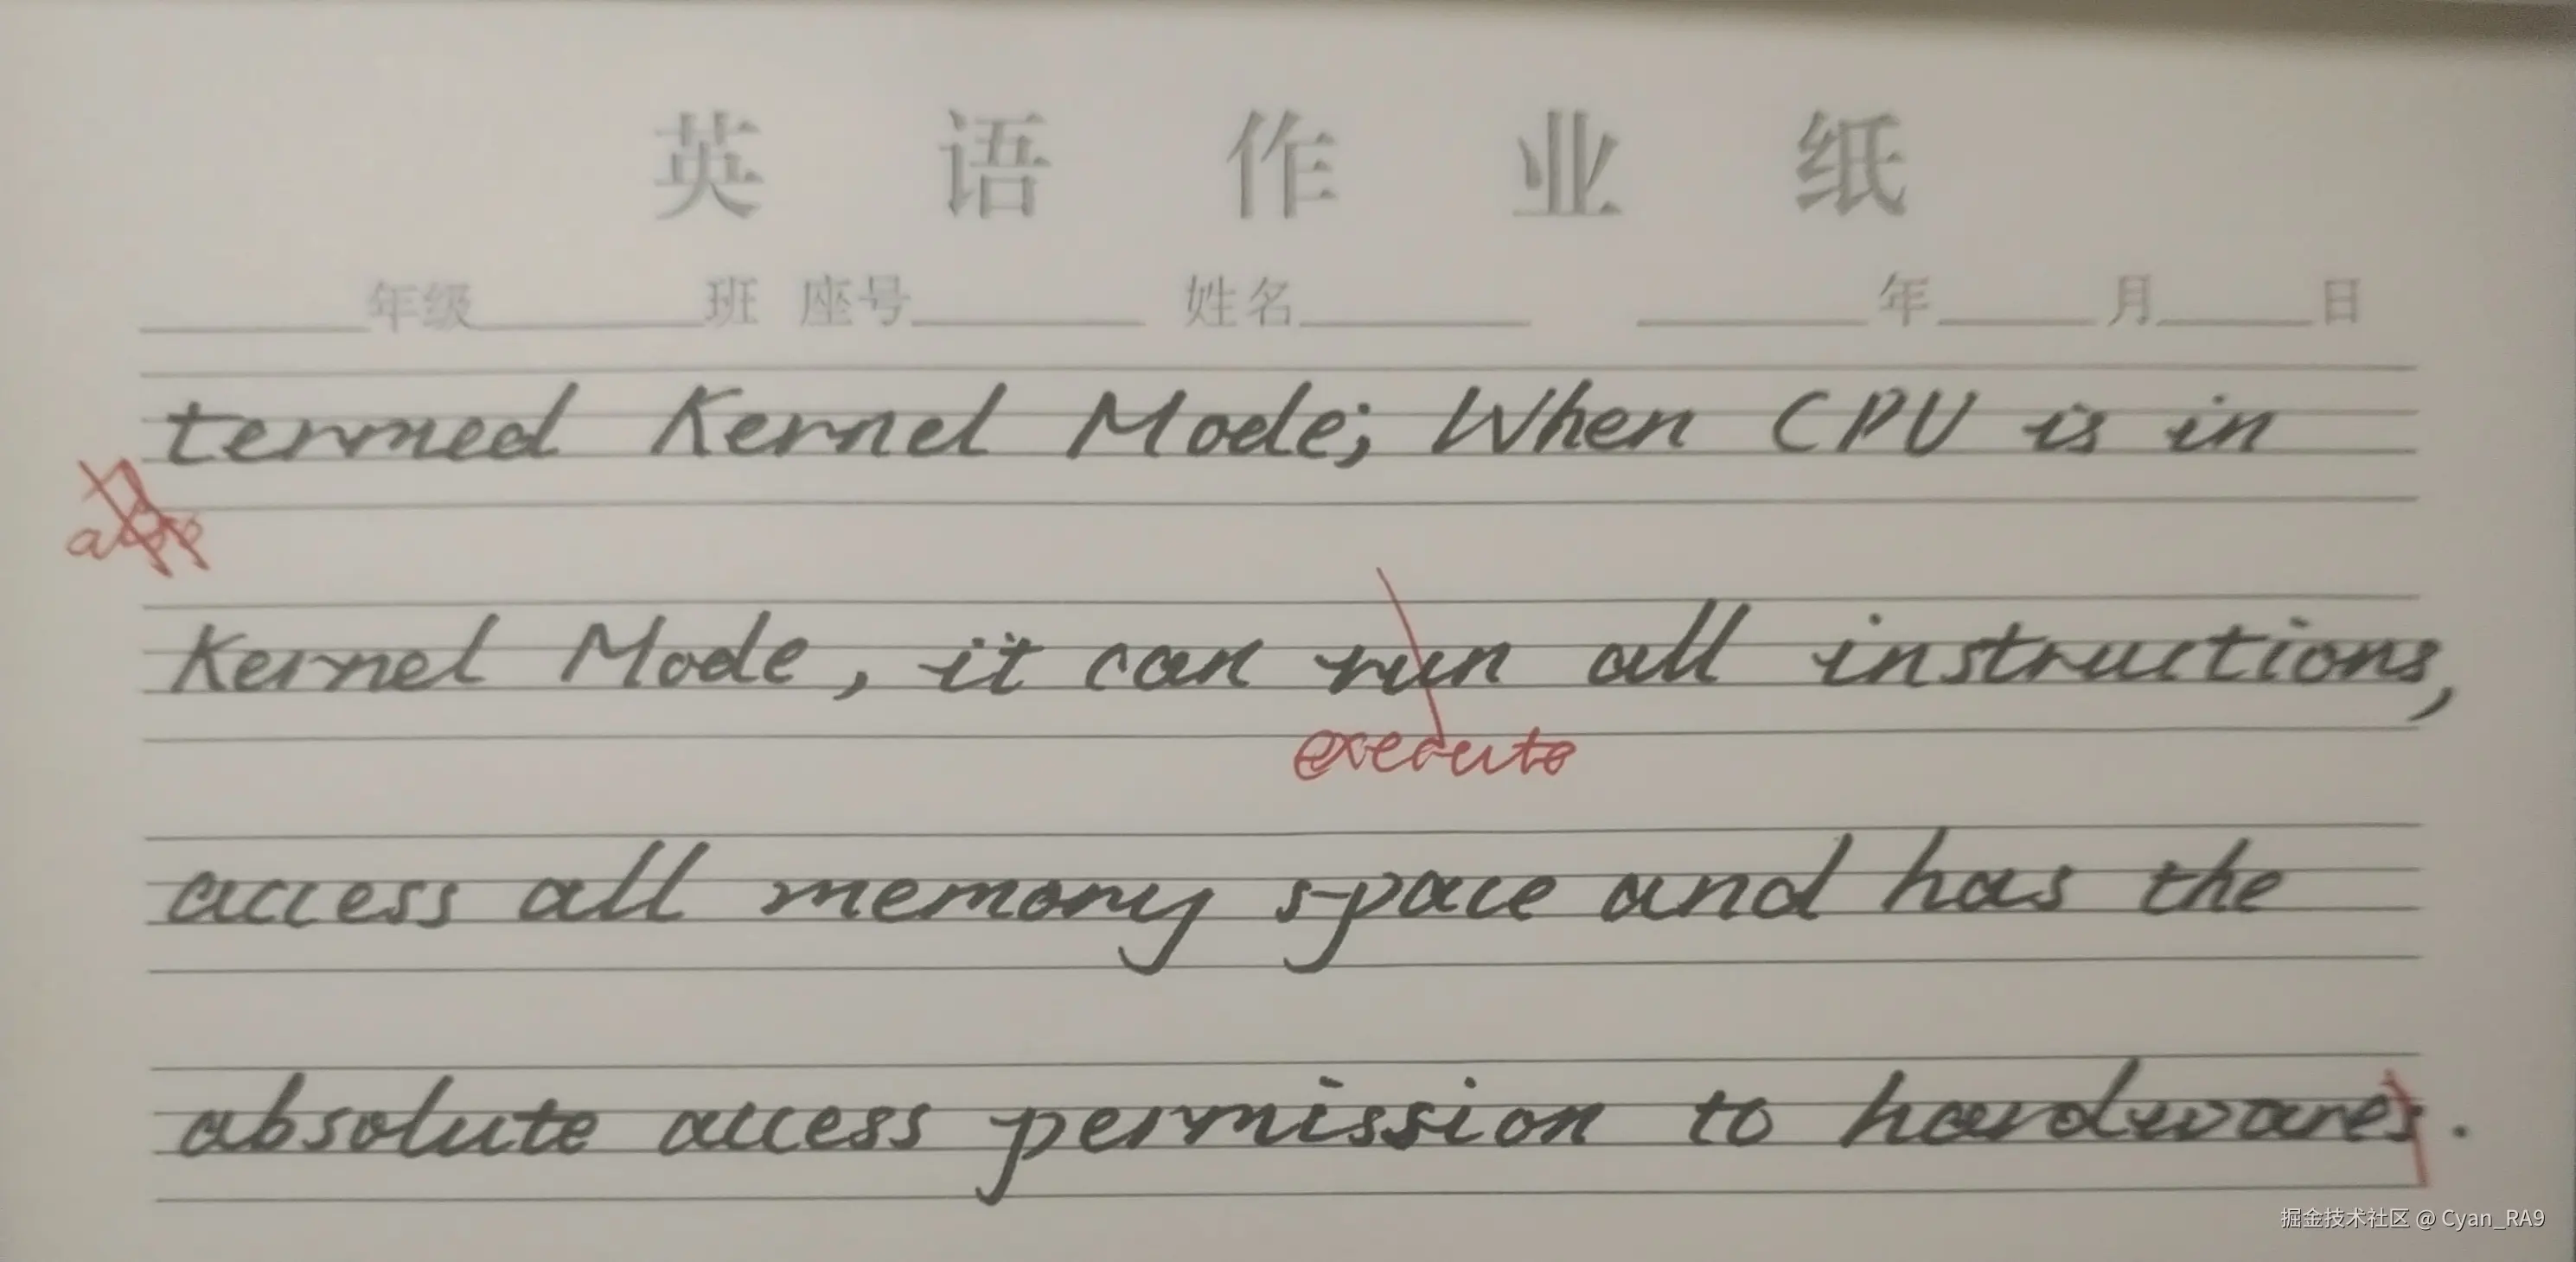 英语作业纸
年级 班 座号 姓名 年 月 日
termed Kernel Mode; When CPU is in
Kernel Mode, it can run all instructions,
execute
access all memory space and has the
absolute access permission to hardwares.
掘金技术社区 @ Cyan_RA9